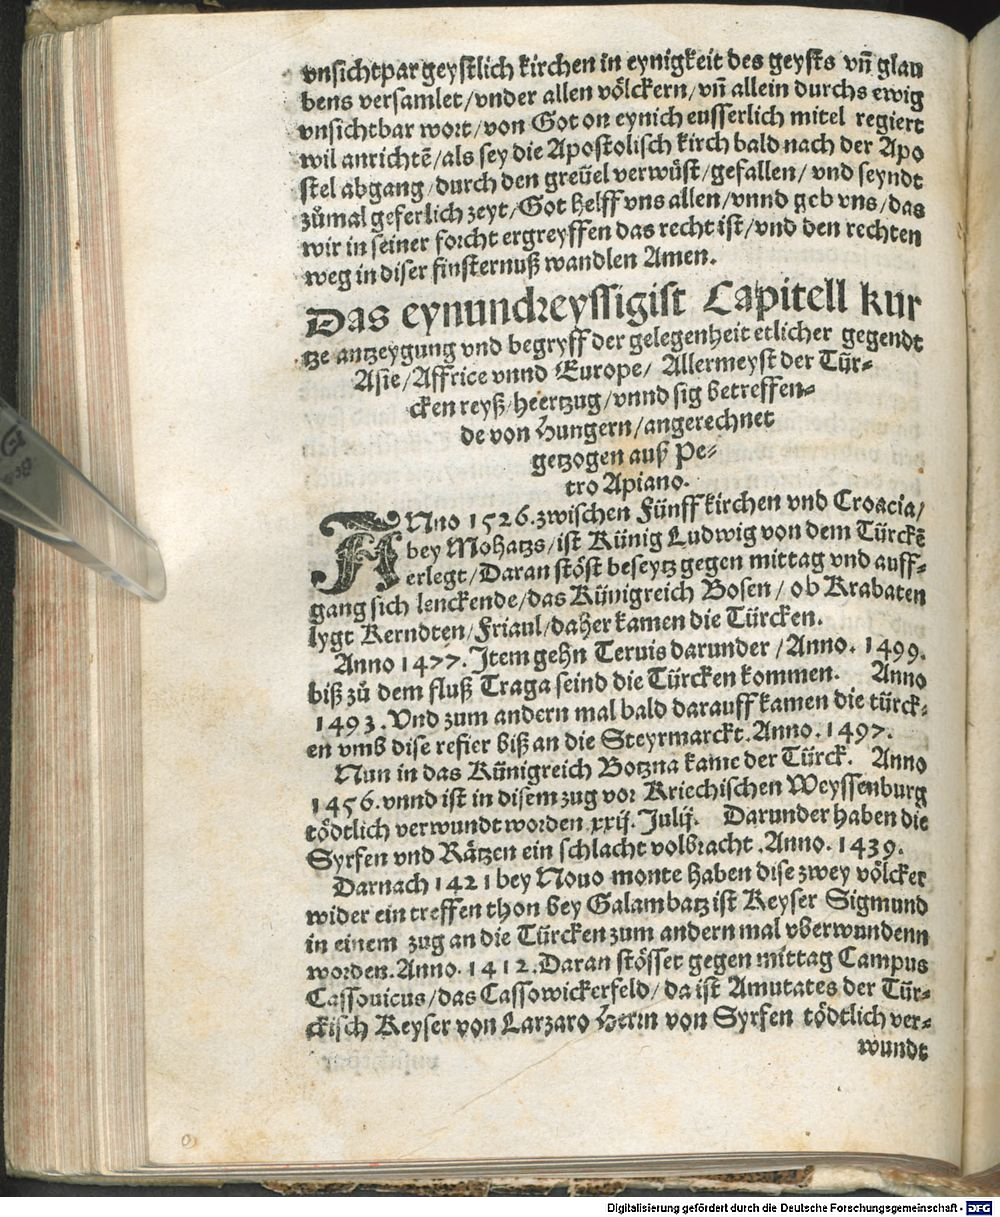 vnsichtpar geystlich kirchen in eynigkeit des geysts vñ glau
bens versamlet/vnder allen völckern/vñ allein durchs ewig
vnsichtbar wort/von Got on eynich eusserlich mitel regiert
wil anrichtē/als sey die Apostolisch kirch bald nach der Apo
stel abgang/durch den greüel verwüst/gefallen/ vnd seyndt
zůmal geferlich zeyt/Got helff vns allen/vnnd geb vns/das
wir in seiner forcht ergreyffen das recht ist/vnd den rechten
weg in diser finsternuß wandlen Amen.
Das eynundreyssigist Capitell kur
tze antzeygung vnd begryff der gelegenheit etlicher gegendt
Asie/Affrice vnnd Europe/ Allermeyst der Tür-
cken reyß/heertzug/vnnd sig betreffen-
de von Hungern/angerechnet
getzogen auß Pe-
tro Apiano.
ANno 1526. zwischen Fünffkirchen vnd Croacia/
bey Mohatzs/ist Künig Ludwig von dem Türckē
erlegt/Daran stöst beseytz gegen mittag vnd auff-
gang sich lenckende/das Künigreich Bosen/ ob Krabaten
lygt Kerndten/Friaul/daher kamen die Türcken.
Anno 1477. Item gehn Teruis darunder/Anno. 1499.
biß zů dem fluß Traga seind die Türcken kommen. Anno
1493. Vnd zum andern mal bald darauff kamen die türck-
en vmb dise refier biß an die Steyrmarckt. Anno. 1497.
Nun in das Künigreich Botzna kame der Türck. Anno
1456. vnnd ist in disem zug vor Kriechischen Weyssenburg
tödtlich verwundt worden xxij. Julij. Darunder haben die
Syrfen vnd Rätzen ein schlacht volbracht. Anno. 1439.
Darnach 1421 bey Nouo monte haben dise zwey völcker
wider ein treffen thon bey Galambatz ist Keyser Sigmund
in einem zug an die Türcken zum andern mal vberwundenn
worden. Anno. 1412. Daran stösset gegen mittag Campus
Cassouicus/das Cassowickerfeld/da ist Amutates der Tür-
ckisch Keyser von Larzaro Herrn von Syrfen tödtlich ver-
wundt
Digitalisierung gefördert durch die Deutsche Forschungsgemeinschaft - DFG